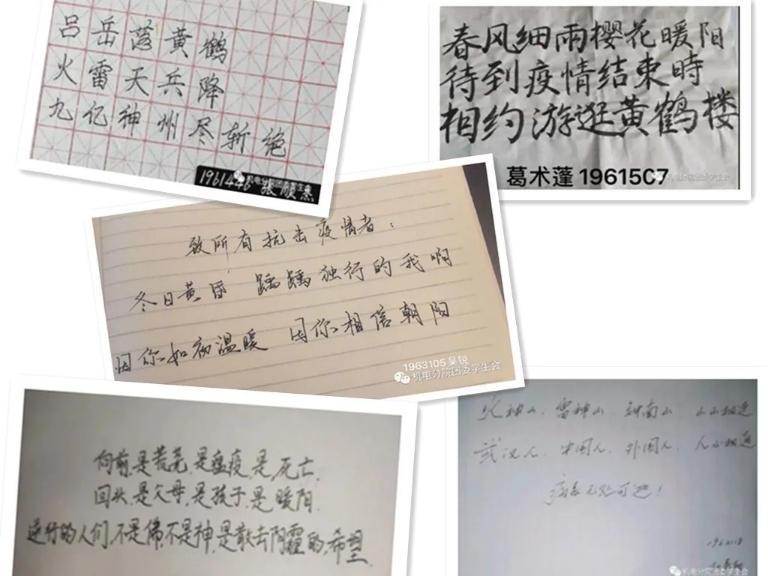 吕岳落黄鹤
火雷天兵降
九亿神州尽斩绝
机电分院团委学生会
春风细雨樱花暖阳
待到疫情结束時
相约游逛黄鹤楼
葛术蓬 19615C7
致所有抗击疫情者：
冬日黄昏 踽踽独行的我啊
因你如初温暖 因你相信朝阳
1963105 吴锐
机电分院团委学生会
向前,是荒芜,是瘟疫,是死亡,
回头,是父母,是孩子,是暖阳.
逆行的人们,不是佛,不是神,是散去阴霾的希望.
火神山、雷神山、钟南山、山山相连
武汉人、中国人、外国人、人人相连
病毒无处可逃！
机电分院团委学生会